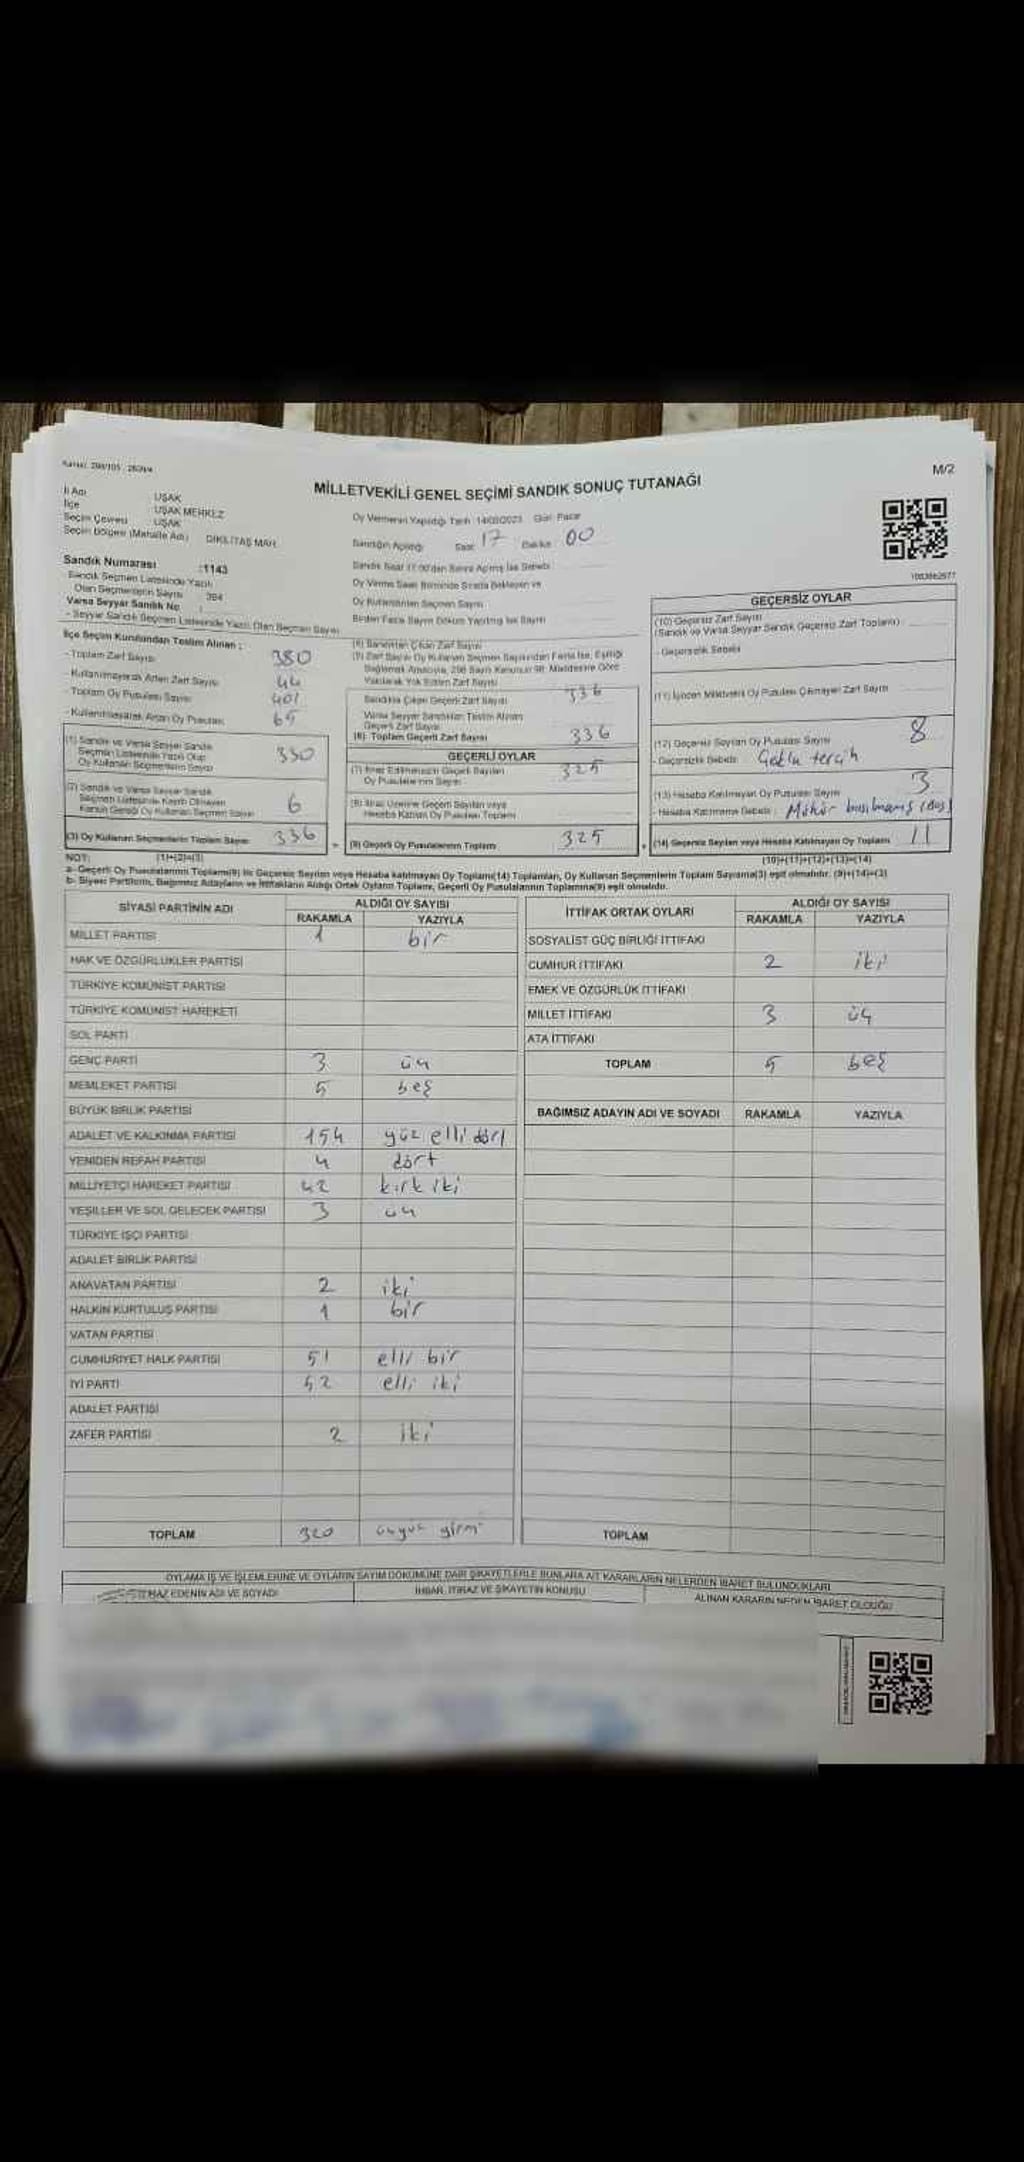 M/2
MİLLETVEKİLİ GENEL SEÇİMİ SANDIK SONUÇ TUTANAĞI
İl Adı UŞAK
İlçe UŞAK MERKEZ
Seçim Çevresi UŞAK
Seçim Bölgesi (Mahalle Adı) DİKİLİTAŞ MAH.
Oy Vermenin Yapıldığı Tarih 14/05/2023 Gün Pazar
Sandığın Açıldığı Saat 17 Dakika 00
Sandık Numarası :1143
Sandık Seçmen Listesinde Yazılı
Olan Seçmenlerin Sayısı 394
Varsa Seyyar Sandık No :
- Seyyar Sandık Seçmen Listesinde Yazılı Olan Seçmen Sayısı
Sandık Saat 17:00'den Sonra Açılmış İse Sebebi
Oy Verme Saati Bitiminde Sırada Bekleyen ve
Oy Kullandırılan Seçmen Sayısı
Birden Fazla Sayım Döküm Yapılmış İse Sayısı
İlçe Seçim Kurulundan Teslim Alınan :
- Toplam Zarf Sayısı 380
- Kullanılmayarak Artan Zarf Sayısı 44
Toplam Oy Pusulası Sayısı 401
- Kullanılmayarak Artan Oy Pusulası 65
(1) Sandık ve Varsa Seyyar Sandık
Seçmen Listesinde Yazılı Olup
Oy Kullanan Seçmenlerin Sayısı 330
(2) Sandık ve Varsa Seyyar Sandık
Seçmen Listesinde Kayıtlı Olmayan
Kanun Gereği Oy Kullanan Seçmen Sayısı 6
(3) Oy Kullanan Seçmenlerin Toplam Sayısı 336
(4) Sandıktan Çıkan Zarf Sayısı
(5) Zarf Sayısı Oy Kullanan Seçmen Sayısından Fazla İse, Eşitliği
Sağlamak Amacıyla, 298 Sayılı Kanunun 98. Maddesine Göre
Yakılarak Yok Edilen Zarf Sayısı
Sandıkta Çıkan Geçerli Zarf Sayısı 336
Varsa Seyyar Sandıktan Teslim Alınan
Geçerli Zarf Sayısı
(6) Toplam Geçerli Zarf Sayısı 336
GEÇERLİ OYLAR
(7) İtiraz Edilmeksizin Geçerli Sayılan
Oy Pusulalarının Sayısı 325
(8) İtiraz Üzerine Geçerli Sayılan veya
Hesaba Katılan Oy Pusulası Toplamı
(9) Geçerli Oy Pusulalarının Toplamı 325
1003862677
GEÇERSİZ OYLAR
(10) Geçersiz Zarf Sayısı
(Sandık ve Varsa Seyyar Sandık Geçersiz Zarf Toplamı)
- Geçersizlik Sebebi
(11) İçinden Milletvekili Oy Pusulası Çıkmayan Zarf Sayısı
(12) Geçersiz Sayılan Oy Pusulası Sayısı 8
- Geçersizlik Sebebi : Çoklu tercih
(13) Hesaba Katılmayan Oy Pusulası Sayısı 3
- Hesaba Katılmama Sebebi : Mühür basılmamış (boş)
(14) Geçersiz Sayılan veya Hesaba Katılmayan Oy Toplamı 11
NOT: (1)+(2)=(3)
(10)+(11)+(12)+(13)=(14)
a- Geçerli Oy Pusulalarının Toplamı(9) ile Geçersiz Sayılan veya Hesaba katılmayan Oy Toplamı(14) Toplamları, Oy Kullanan Seçmenlerin Toplam Sayısına(3) eşit olmalıdır. (9)+(14)=(3)
b- Siyasi Partilerin, Bağımsız Adayların ve İttifakların Aldığı Ortak Oyların Toplamı, Geçerli Oy Pusulalarının Toplamına(9) eşit olmalıdır.
SİYASİ PARTİNİN ADI ALDIĞI OY SAYISI
RAKAMLA YAZIYLA
MİLLET PARTİSİ 1 bir
HAK VE ÖZGÜRLÜKLER PARTİSİ
TÜRKİYE KOMÜNİST PARTİSİ
TÜRKİYE KOMÜNİST HAREKETİ
SOL PARTİ
GENÇ PARTİ 3 üç
MEMLEKET PARTİSİ 5 beş
BÜYÜK BİRLİK PARTİSİ
ADALET VE KALKINMA PARTİSİ 154 yüz elli dört
YENİDEN REFAH PARTİSİ 4 dört
MİLLİYETÇİ HAREKET PARTİSİ 42 kırk iki
YEŞİLLER VE SOL GELECEK PARTİSİ 3 üç
TÜRKİYE İŞÇİ PARTİSİ
ADALET BİRLİK PARTİSİ
ANAVATAN PARTİSİ 2 iki
HALKIN KURTULUŞ PARTİSİ 1 bir
VATAN PARTİSİ
CUMHURİYET HALK PARTİSİ 51 elli bir
İYİ PARTİ 52 elli iki
ADALET PARTİSİ
ZAFER PARTİSİ 2 iki
TOPLAM 320 üçyüz yirmi
İTTİFAK ORTAK OYLARI ALDIĞI OY SAYISI
RAKAMLA YAZIYLA
SOSYALİST GÜÇ BİRLİĞİ İTTİFAKI
CUMHUR İTTİFAKI 2 iki
EMEK VE ÖZGÜRLÜK İTTİFAKI
MİLLET İTTİFAKI 3 üç
ATA İTTİFAKI
TOPLAM 5 beş
BAĞIMSIZ ADAYIN ADI VE SOYADI RAKAMLA YAZIYLA
TOPLAM
OYLAMA İŞ VE İŞLEMLERİNE VE OYLARIN SAYIM DÖKÜMÜNE DAİR ŞİKAYETLERLE BUNLARA AİT KARARLARIN NELERDEN İBARET BULUNDUKLARI
İTİRAZ EDENİN ADI VE SOYADI
İHBAR, İTİRAZ VE ŞİKAYETİN KONUSU
ALINAN KARARIN NEDEN İBARET OLDUĞU